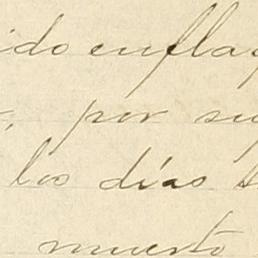 ido enflaq
por su
los días
muerto